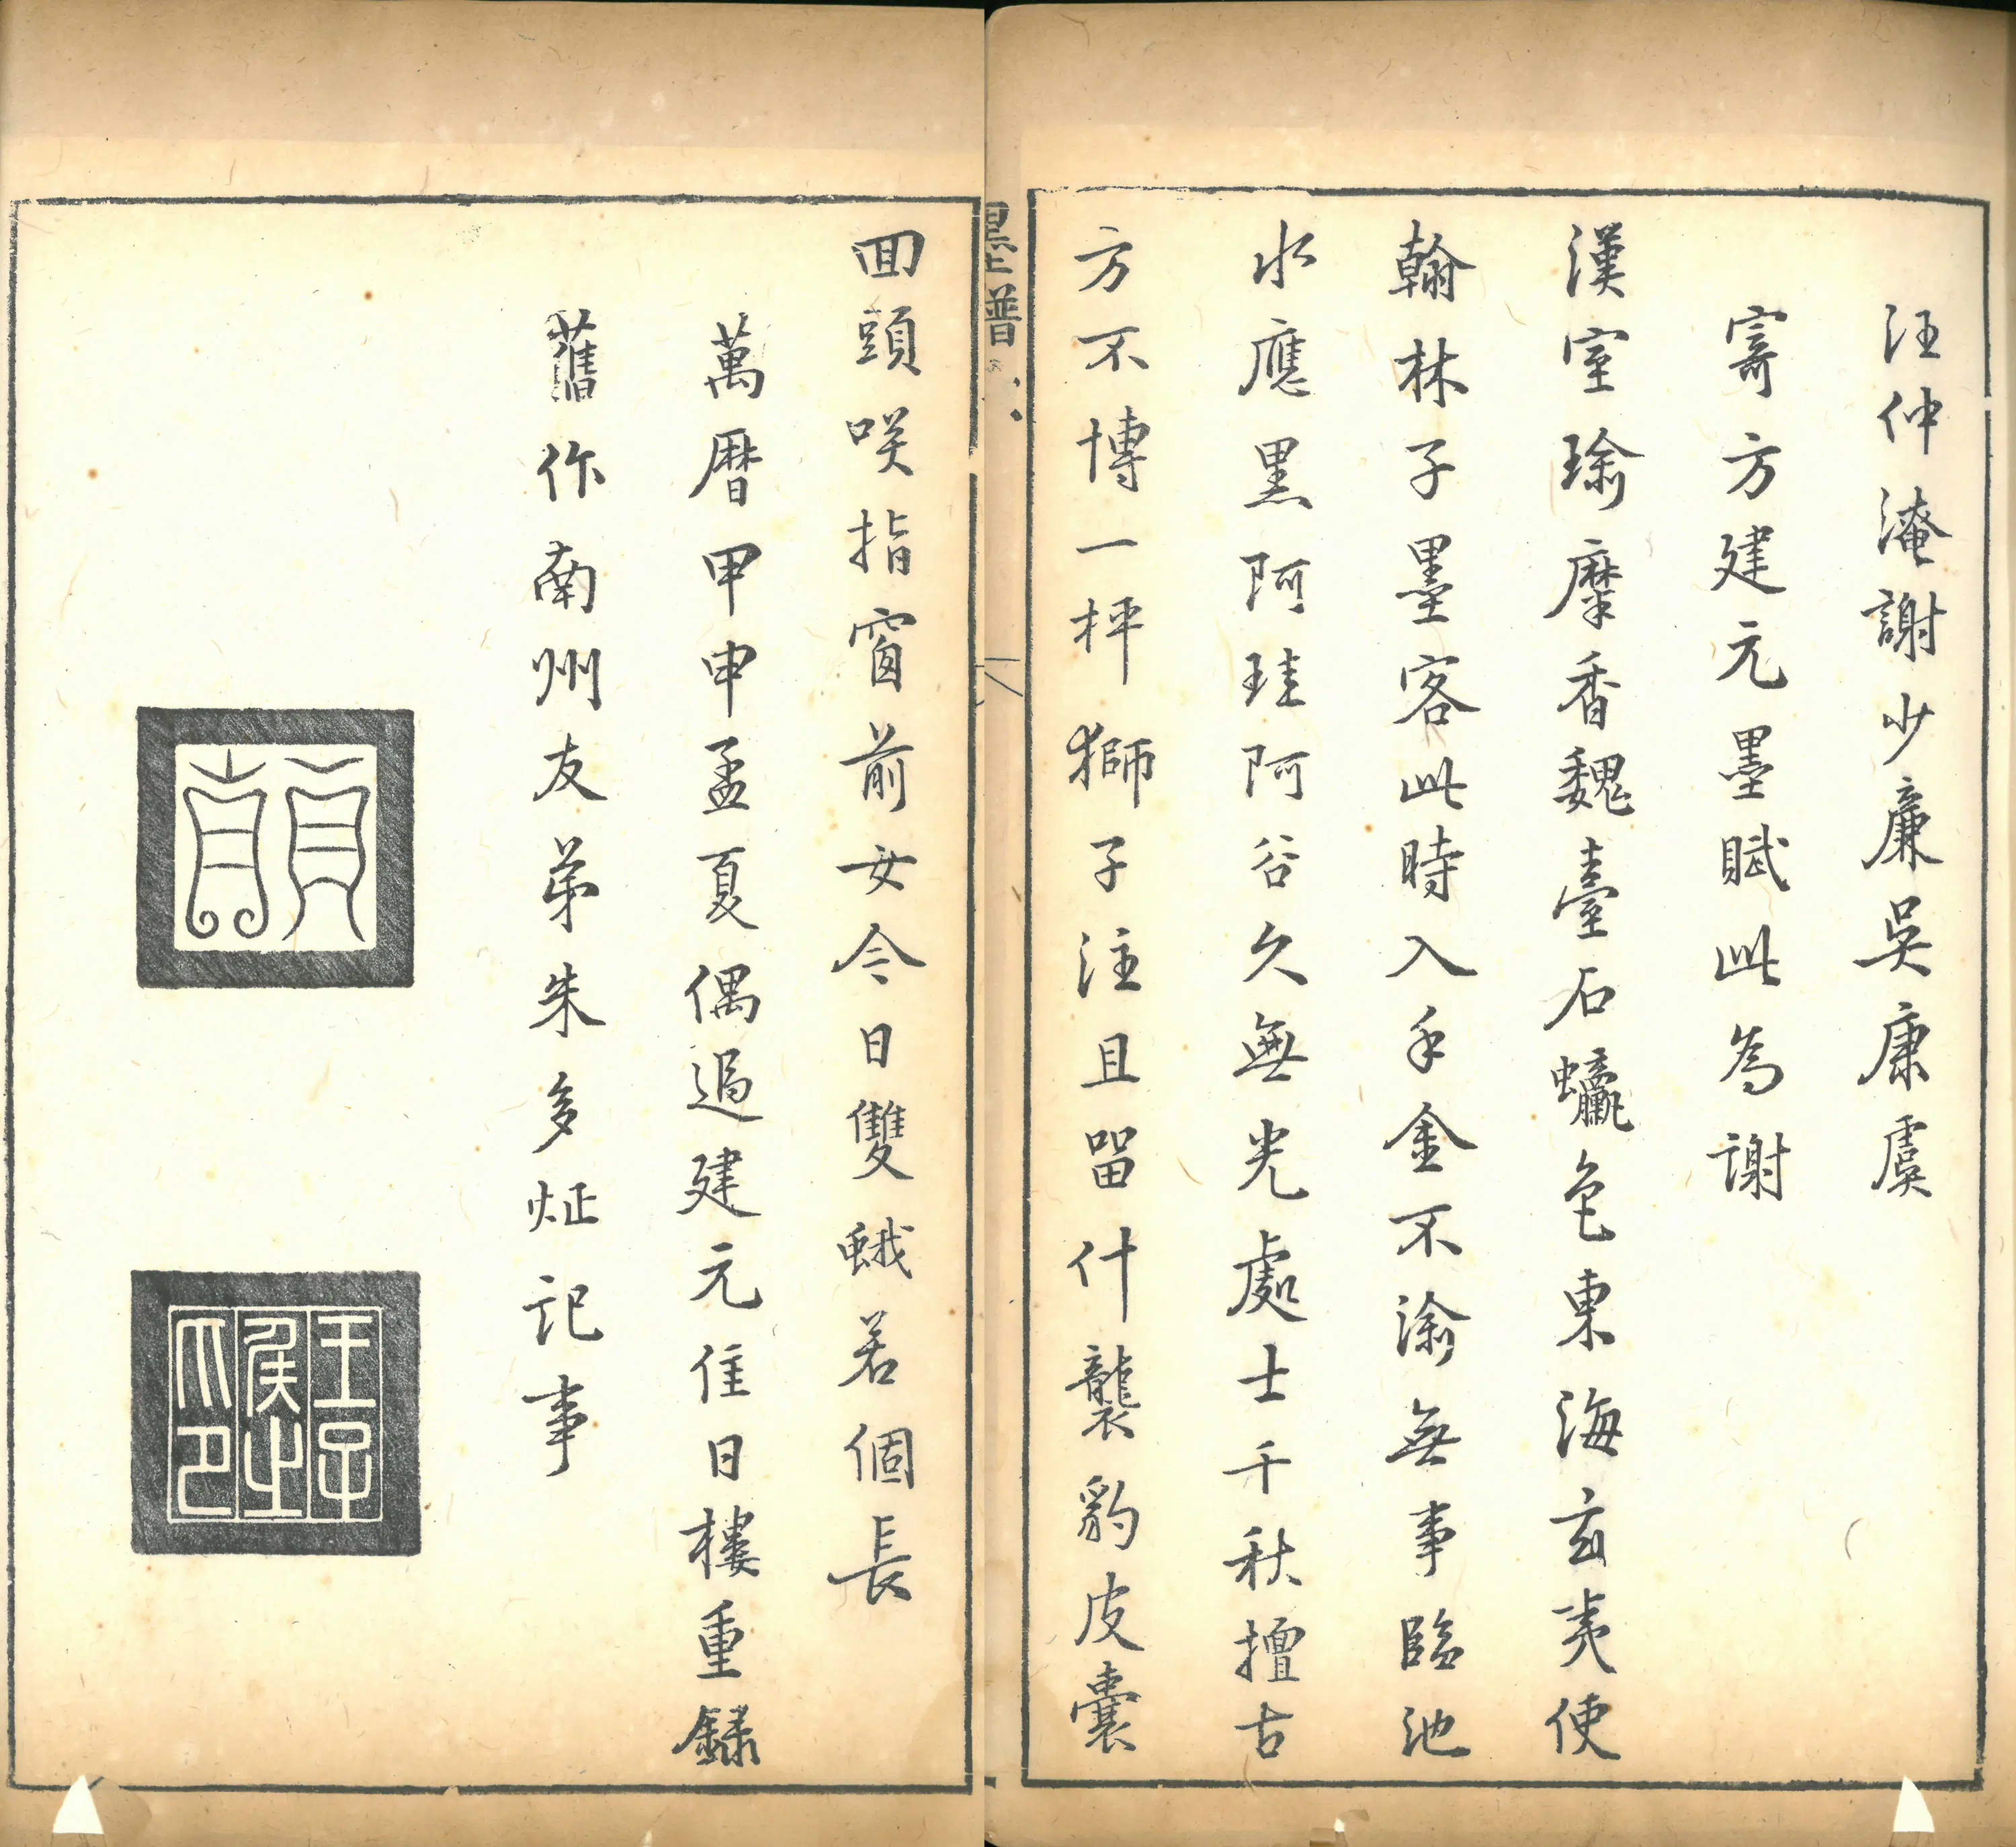 汪仲淹謝少廉吳康虞
寄方建元墨賦此為謝
漢室瑜麋香魏臺石蠃色東海玄夷使
翰林子墨客此時入手金不渝無事臨池
水應黑阿珪阿谷久無光處士千秋擅古
方不博一枰獅子注且留什襲豹皮囊
墨譜
回頭咲指窗前女今日雙蛾若個長
萬曆甲申孟夏偶過建元佳日樓重錄
舊作南州友弟朱多炡記事
貞
王孫之印